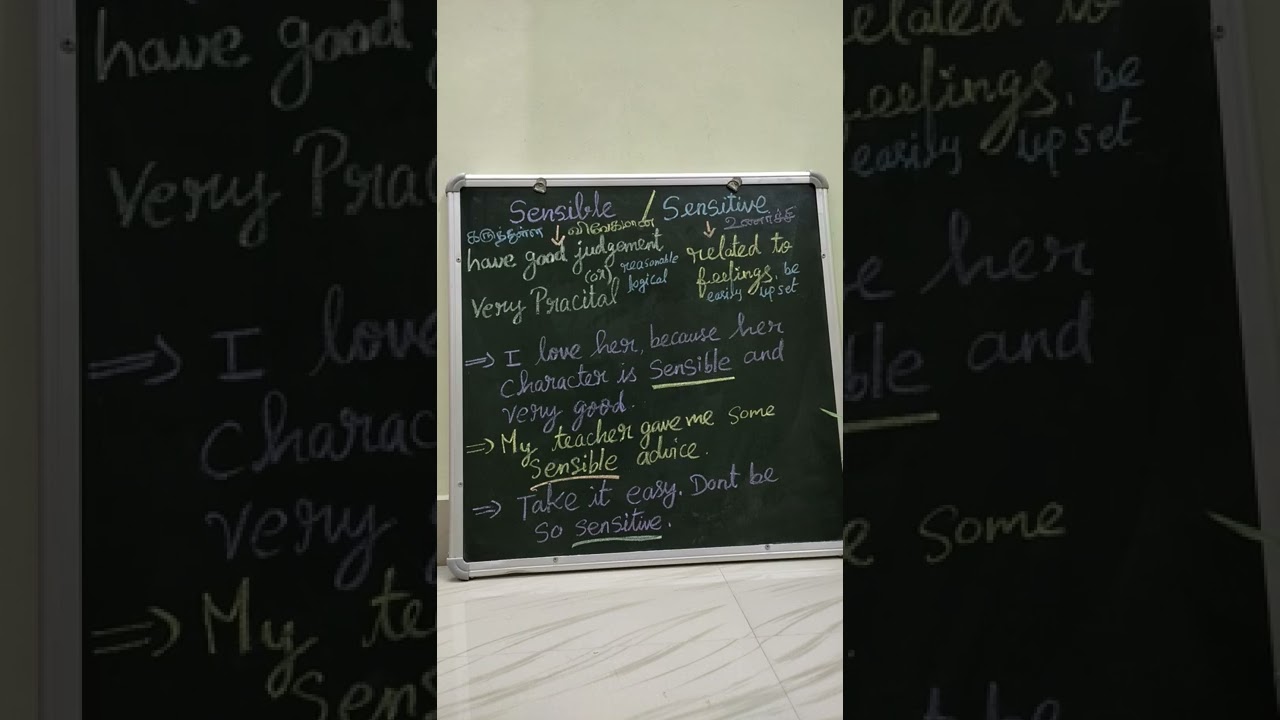 Sensible / Sensitive
விவேகமான
have good judgement
(or) reasonable
logical
Very Pracital
related to
feelings, be
easily upset
=> I love her, because her
character is Sensible and
very good.
=> My teacher gave me some
Sensible advice.
=> Take it easy. Dont be
so sensitive.